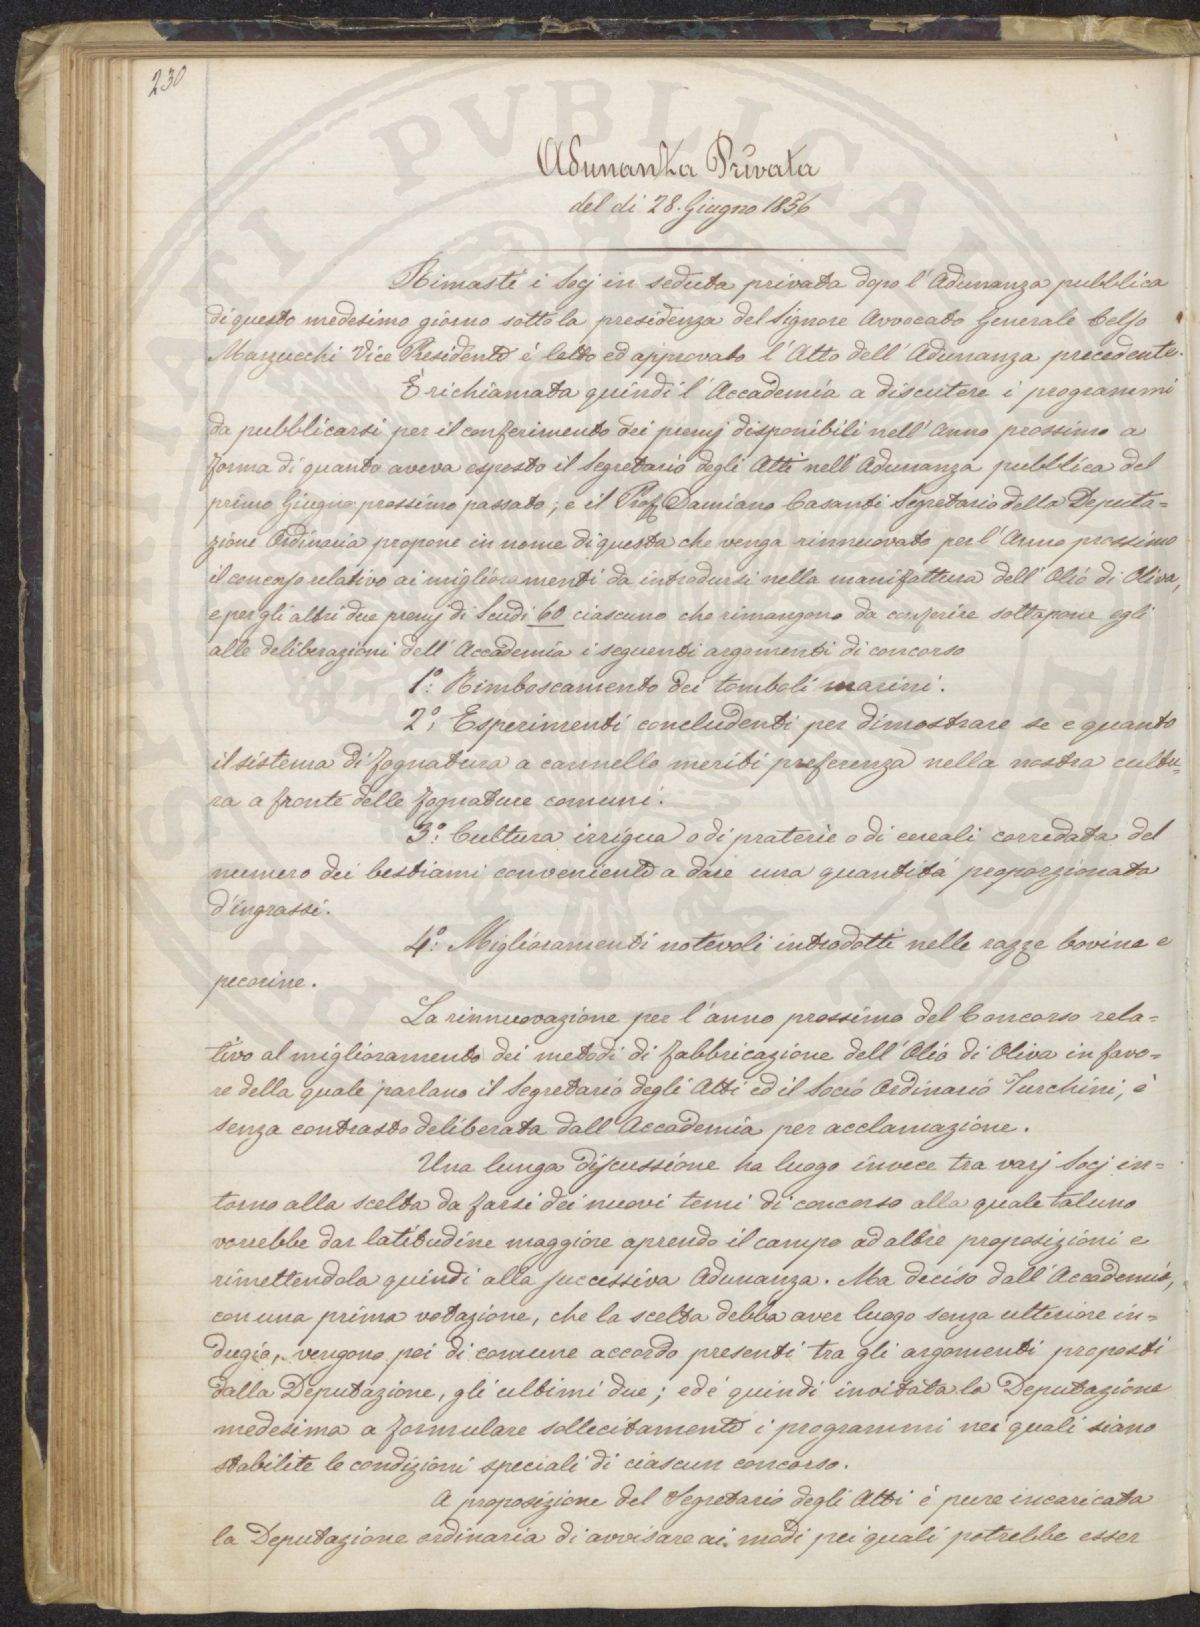 230
Adunanza Privata
del dì 28. Giugno 1856
Rimasti i Socj in seduta privata dopo l'Adunanza pubblica
di questo medesimo giorno sotto la presidenza del Signore Avvocato Generale Celso
Marzucchi Vice Presidente è letto ed approvato l'Atto dell'Adunanza precedente.
È richiamata quindi l'Accademia a discutere i programmi
da pubblicarsi per il conferimento dei premj disponibili nell'Anno prossimo a
forma di quanto aveva esposto il Segretario degli Atti nell'Adunanza pubblica del
primo Giugno prossimo passato; e il Prof. Damiano Casanti Segretario della Deputa=
zione Ordinaria propone in nome di questa che venga rinnuovato per l'Anno prossimo
il concorso relativo ai miglioramenti da introdursi nella manifattura dell'Olio di Oliva,
e per gli altri due premj di Scudi 60 ciascuno che rimangono da conferire sottopone egli
alle deliberazioni dell'Accademia i seguenti argomenti di concorso
1.° Rimboscamento dei tomboli marini.
2.° Esperimenti concludenti per dimostrare se e quanto
il sistema di fognatura a cannello meriti preferenza nella nostra cultu=
ra a fronte delle fognature comuni.
3.° Cultura irrigua o di praterie o di cereali corredata del
numero dei bestiami conveniente a dare una quantità proporzionata
d'ingrassi.
4.° Miglioramenti notevoli introdotti nelle razze bovine e
pecorine.
La rinnuovazione per l'anno prossimo del Concorso rela=
tivo al miglioramento dei metodi di fabbricazione dell'Olio di Oliva in favo=
re della quale parlano il Segretario degli Atti ed il Socio Ordinario Turchini, è
senza contrasto deliberata dall'Accademia per acclamazione.
Una lunga discussione ha luogo invece tra varj Socj in=
torno alla scelta da farsi dei nuovi temi di concorso alla quale taluno
vorrebbe dar latitudine maggiore aprendo il campo ad altre proposizioni e
rimettendola quindi alla successiva Adunanza. Ma deciso dall'Accademia,
con una prima votazione, che la scelta debba aver luogo senza ulteriore in=
dugio, vengono poi di comune accordo presenti tra gli argomenti proposti
dalla Deputazione, gli ultimi due; ed è quindi invitata la Deputazione
medesima a formulare sollecitamente i programmi nei quali siano
stabilite le condizioni speciali di ciascun concorso.
A proposizione del Segretario degli Atti è pure incaricata
la Deputazione ordinaria di avvisare ai modi pei quali potrebbe esser